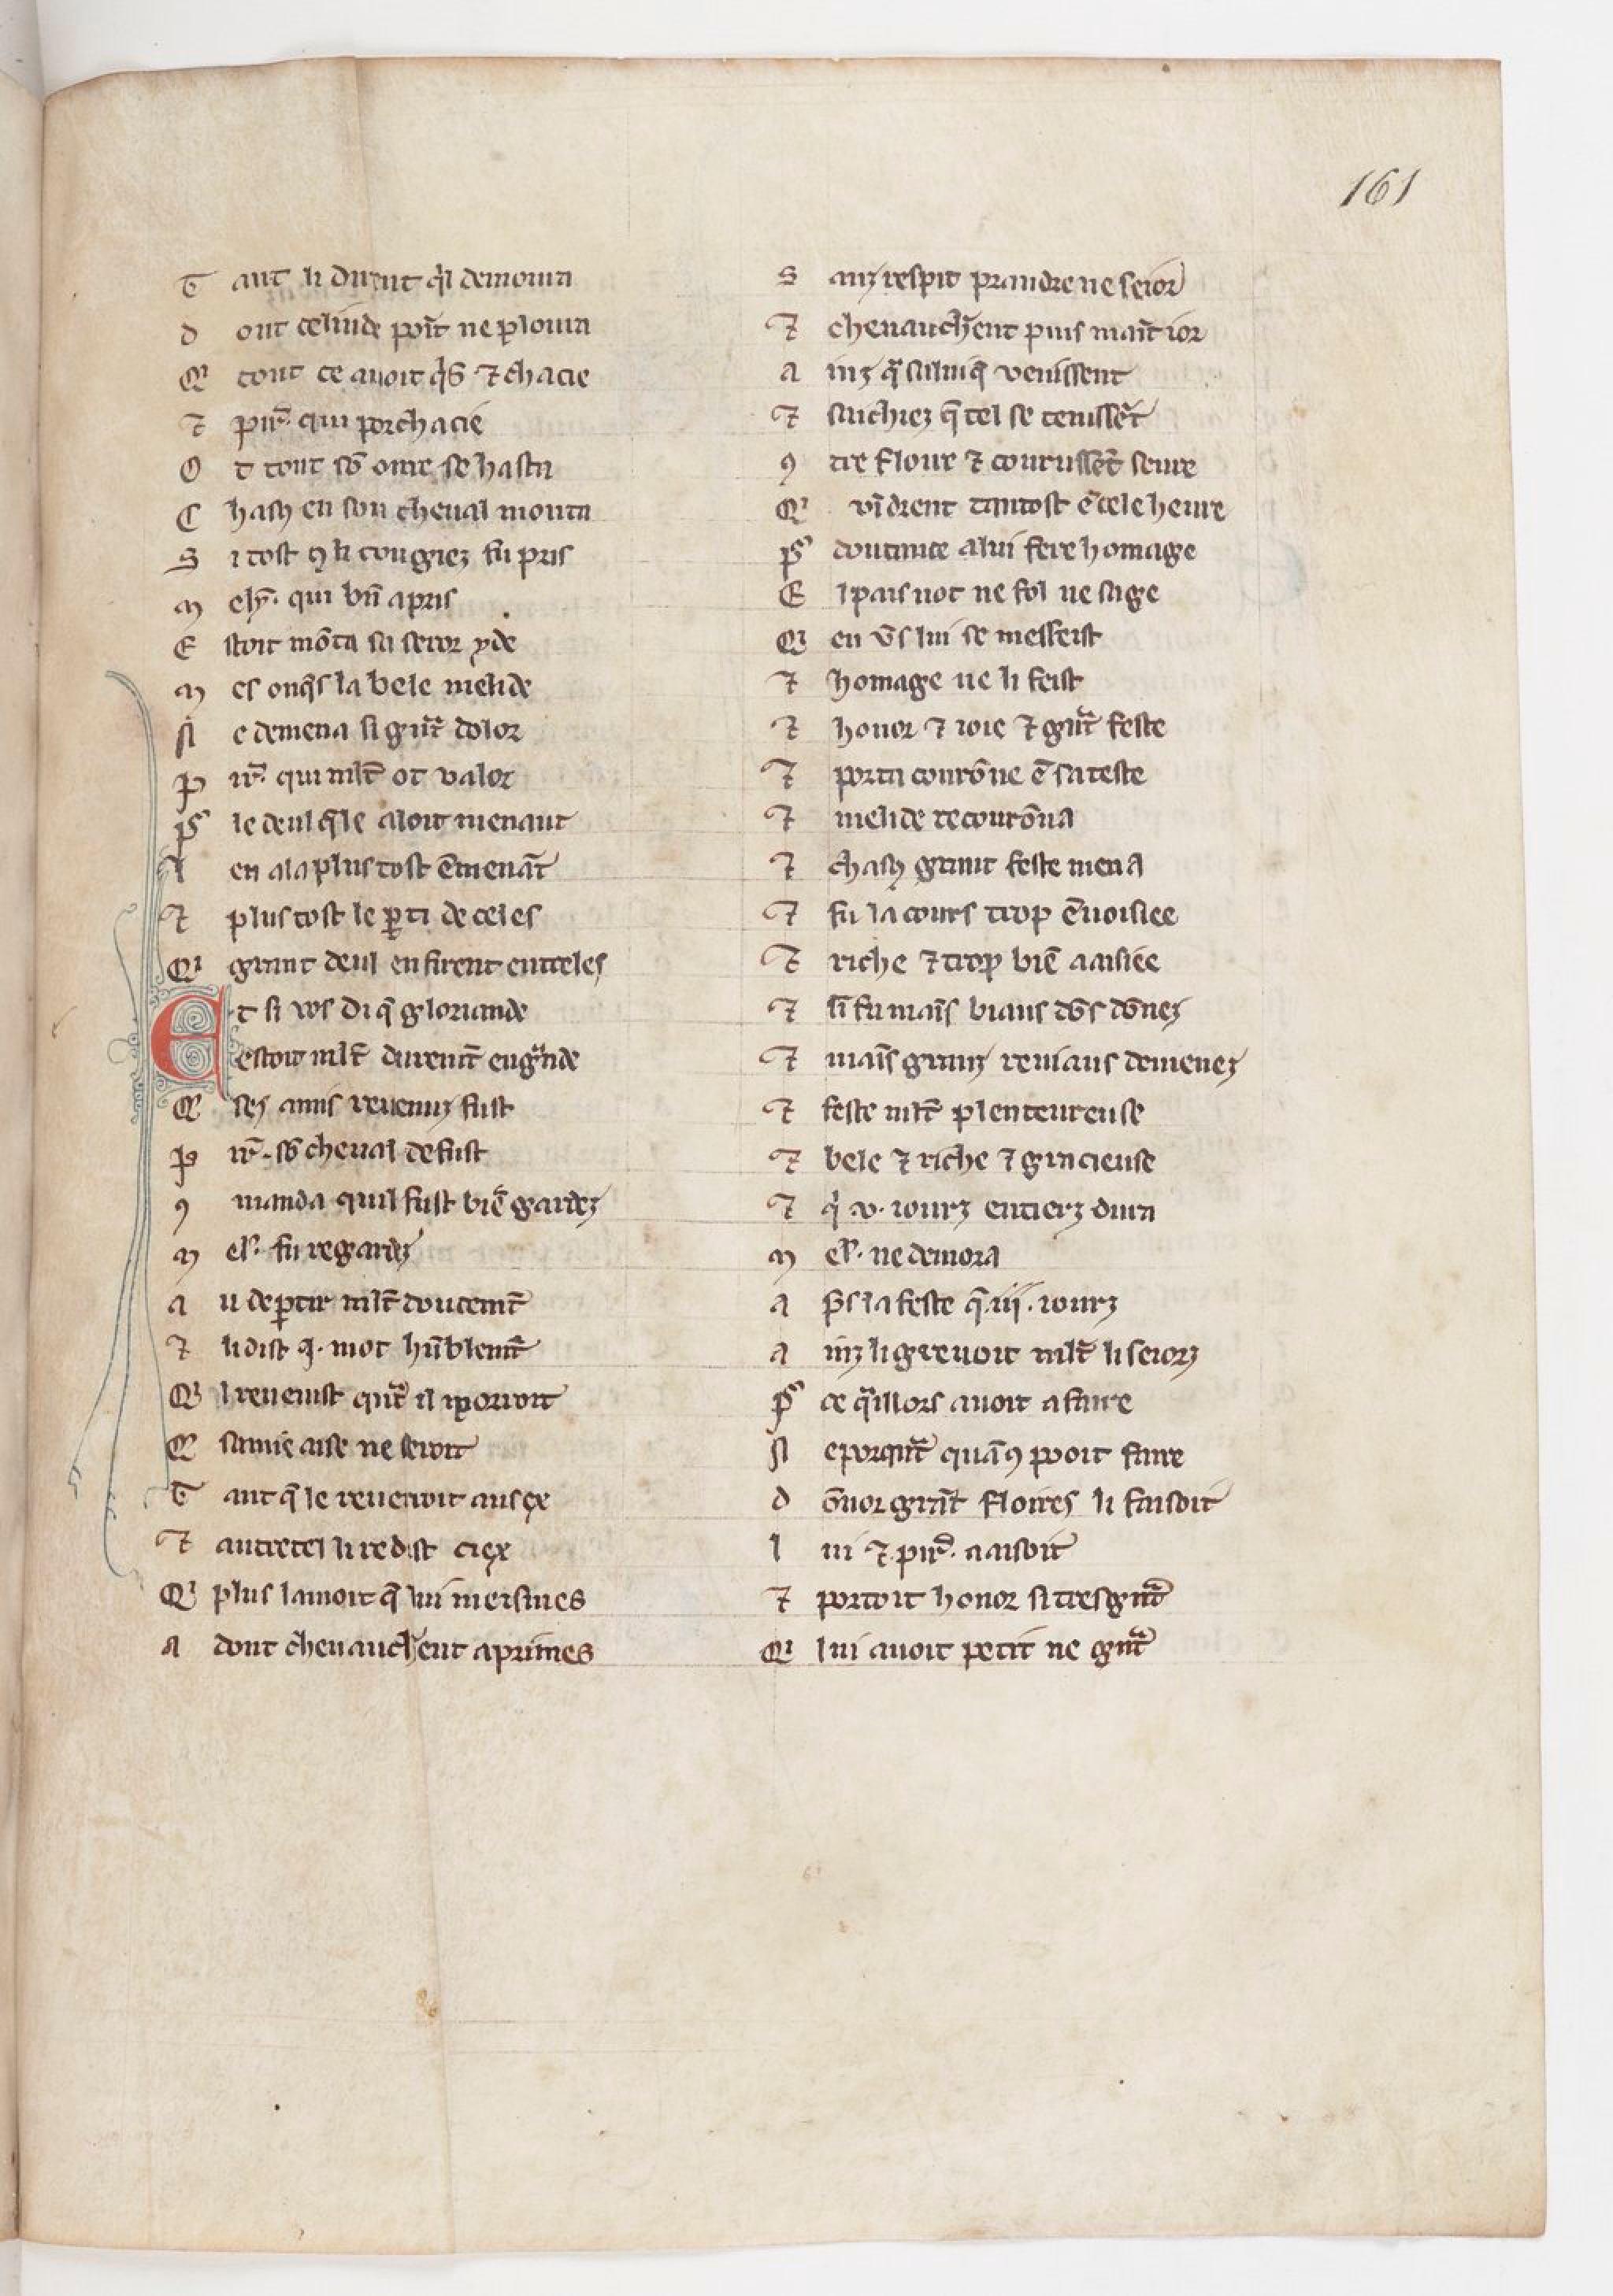 161
T ant li durent q̾l demoura
D ont celinde poīt ne ꝑ loura
Q̾ tout ce auoit q̾s ⁊ chacie
⁊ pir̄. qui porchacie
O t tout sō oirre se hasta
C hasꝯ en son cheual monta
S i tost ꝯ li congiez fu pris
M elyͣ. qui bn̄ apris
E stoit mōta sa seror yde
M es onq̄s la bele melide
N e demena si grāt dolor
P ir̄. qui mlt̄ ot valor
P̾ le deul q̄le aloit menant
S en ala plus tost ēmenāt
⁊ plus tost se ꝑti de celes
Q̾ grant deul en firent entreles
Et si vos di q̄ gloriande
Restoit mlt̄ durem̄t engͣnde
Q̾ ses amis reuenuz fust
P ir̄. sō cheual de fust
ꝯ manda quil fust biē gardez
M elͣ. fu regardez
A u deꝑtir mlt̄ doucem̄t
⁊ li dist .j. mot hūblem̄t
Q̾l reuenist qūt il porroit
Q̾ samie aise ne seroit
T ant q̄ le reuerroit aus ex
⁊ autretel li redist ciex
Q̾ plus lamoit q̄ lui meismes
A dont cheuauch̾ent a primes
S anz respit prandre ne seior
⁊ cheuauch̾ent puis maīt ior
A inz qͣ salmiq̄ venissent
⁊ sachiez q̄ tel se tenissēt
ꝯ tre floire ⁊ courussēt seure
Q̾ vīdrent tantost ē cele heure
P̾ doutance a lui fere homage
E l pais not ne fol ne sage
Q̾ en v̄s lui se mesfeist
⁊ homage ne li feist
⁊ honor ⁊ ioie ⁊ grāt feste
⁊ porta courōne ē sa teste
⁊ melide recourōna
⁊ chasꝯ grant feste mena
⁊ fu la cours trop ēuoisiee
⁊ riche ⁊ trop biē aaisiee
⁊ si fu maīs biaus dōs dōnez
⁊ maīs granz reuiaus demenez
⁊ feste mlt̄ plentureuse
⁊ bele ⁊ riche ⁊ gracieuse
⁊ q̾ .v. iourz entierz dura
M elͣ. ne demora
A p̄s la feste q̄ .iij. iourz
A inz li greuoit mlt̄ li seiorz
P̾ ce qͣillors auoit a faire
N eporqūt quāꝯ pooit faire
D ōnor grāt floires li faisoit
L ui ⁊ pirͩ. aaisoit
⁊ portoit honor si tres grāt
Q̾ lui auoit petit ne grāt